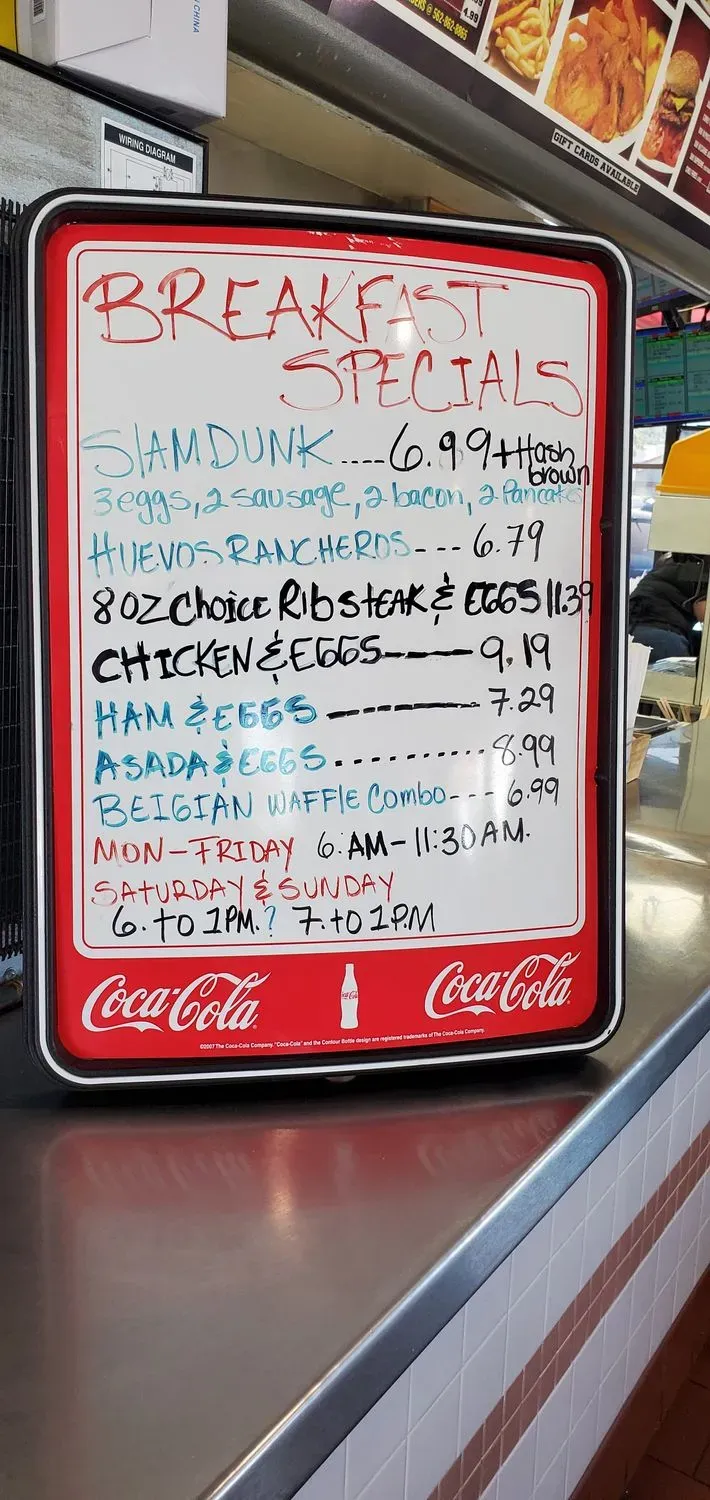 CHINA
WIRING DIAGRAM
@ 562-862-8865
4.99
GIFT CARDS AVAILABLE
BREAKFAST
SPECIALS
SlAMDUNK....6.99+Hash
brown
3eggs, 2 sausage, 2 bacon, 2 Pancakes
HUEVOS RANCHEROS--- 6.79
8OZ Choice Rib STEAK & EGGS 11.39
CHICKEN & EGGS------ 9.19
HAM & EGGS ---------- 7.29
ASADA & EGGS.......... 8.99
BElGIAN WAFFlE Combo--- 6.99
MON-FRIDAY 6:AM-11:30AM.
SATURDAY & SUNDAY
6.TO 1PM.? 7.TO 1P.M
Coca-Cola Coca-Cola
©2007 The Coca-Cola Company. "Coca-Cola" and the Contour Bottle design are registered trademarks of The Coca-Cola Company.